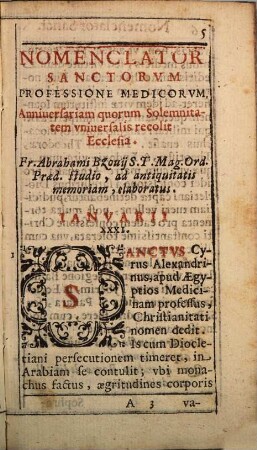 5
NOMENCLATOR
SANCTORVM
PROFESSIONE MEDICORVM,
Anniuersariam quorum Solemnita-
tem vniuersalis recolit
Ecclesia.
Fr. Abrahami Bzouij S.T. Mag. Ord.
Præd. studio, ad antiquitatis
memoriam, elaboratus.
IANVARII
XXXI.
SANCTVS Cy-
rus Alexandri-
nus, apud Ægy-
ptios Medici-
nam professus,
Christianitati
nomen dedit.
Is cum Diocle-
tiani persecutionem timeret, in
Arabiam se contulit; vbi mona-
chus factus, ægritudines corporis
A 3 va-